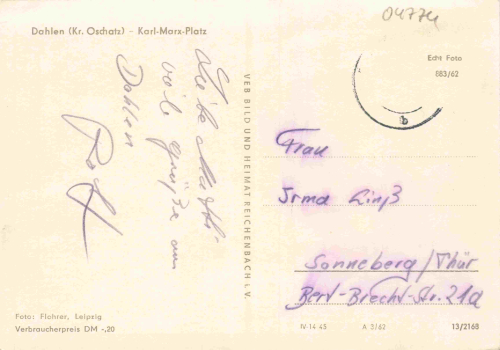 04774
Dahlen (Kr. Oschatz) - Karl-Marx-Platz
Echt Foto
883/62
b
Liebe Mutti
viele Grüße aus
Dahlen
VEB BILD UND HEIMAT REICHENBACH i. V.
Frau
Irma Linß
Sonneberg/Thür
Bert-Brecht-Str. 21a
Foto: Flohrer, Leipzig
Verbraucherpreis DM -,20
IV-14-45 A 3/62 13/2168